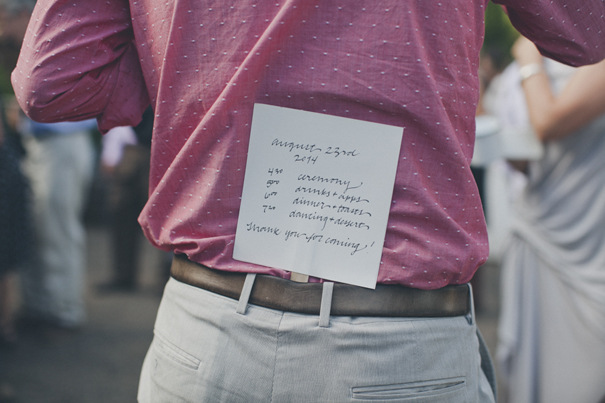 august 23rd
2014
430 ceremony
500 drinks + apps
600 dinner + toasts
730 dancing + desserts
thank you for coming!